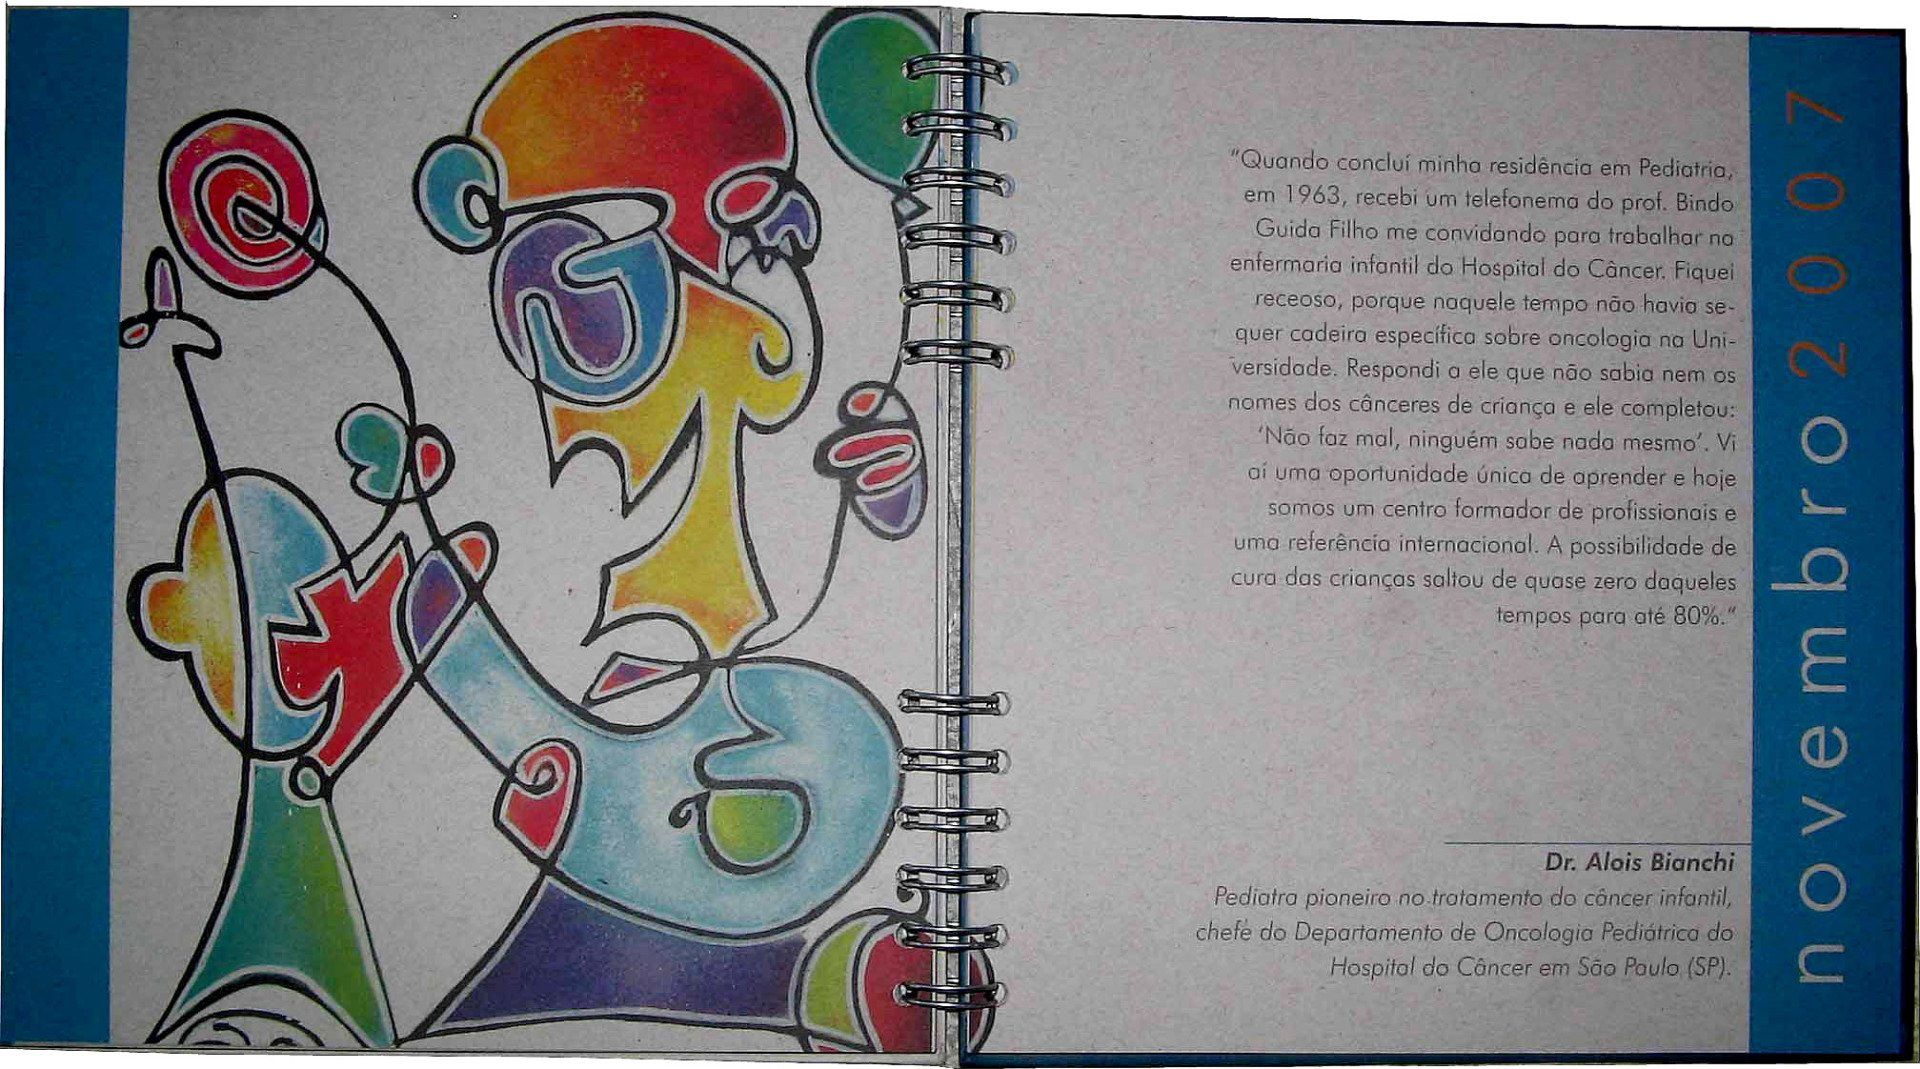 "Quando concluí minha residência em Pediatria,
em 1963, recebi um telefonema do prof. Bindo
Guida Filho me convidando para trabalhar na
enfermaria infantil do Hospital do Câncer. Fiquei
receoso, porque naquele tempo não havia se-
quer cadeira específica sobre oncologia na Uni-
versidade. Respondi a ele que não sabia nem os
nomes dos cânceres de criança e ele completou:
'Não faz mal, ninguém sabe nada mesmo'. Vi
aí uma oportunidade única de aprender e hoje
somos um centro formador de profissionais e
uma referência internacional. A possibilidade de
cura das crianças saltou de quase zero daqueles
tempos para até 80%."
Dr. Alois Bianchi
Pediatra pioneiro no tratamento do câncer infantil,
chefe do Departamento de Oncologia Pediátrica do
Hospital do Câncer em São Paulo (SP).
novembro 2007